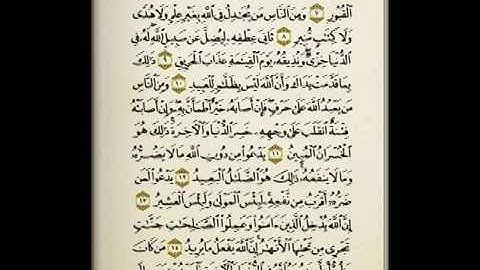 ٱلۡقُبُورِ ٧ وَمِنَ ٱلنَّاسِ مَن يُجَٰدِلُ فِي ٱللَّهِ بِغَيۡرِ عِلۡمٖ وَلَا هُدٗى
وَلَا كِتَٰبٖ مُّنِيرٖ ٨ ثَانِيَ عِطۡفِهِۦ لِيُضِلَّ عَن سَبِيلِ ٱللَّهِۖ لَهُۥ فِي
ٱلدُّنۡيَا خِزۡيٞۖ وَنُذِيقُهُۥ يَوۡمَ ٱلۡقِيَٰمَةِ عَذَابَ ٱلۡحَرِيقِ ٩ ذَٰلِكَ
بِمَا قَدَّمَتۡ يَدَاكَ وَأَنَّ ٱللَّهَ لَيۡسَ بِظَلَّٰمٖ لِّلۡعَبِيدِ ١٠ وَمِنَ ٱلنَّاسِ
مَن يَعۡبُدُ ٱللَّهَ عَلَىٰ حَرۡفٖۖ فَإِنۡ أَصَابَهُۥ خَيۡرٌ ٱطۡمَأَنَّ بِهِۦۖ وَإِنۡ أَصَابَتۡهُ
فِتۡنَةٌ ٱنقَلَبَ عَلَىٰ وَجۡهِهِۦ خَسِرَ ٱلدُّنۡيَا وَٱلۡأٓخِرَةَۚ ذَٰلِكَ هُوَ
ٱلۡخُسۡرَانُ ٱلۡمُبِينُ ١١ يَدۡعُواْ مِن دُونِ ٱللَّهِ مَا لَا يَضُرُّهُۥ
وَمَا لَا يَنفَعُهُۥۚ ذَٰلِكَ هُوَ ٱلضَّلَٰلُ ٱلۡبَعِيدُ ١٢ يَدۡعُواْ لَمَن
ضَرُّهُۥٓ أَقۡرَبُ مِن نَّفۡعِهِۦۚ لَبِئۡسَ ٱلۡمَوۡلَىٰ وَلَبِئۡسَ ٱلۡعَشِيرُ ١٣
إِنَّ ٱللَّهَ يُدۡخِلُ ٱلَّذِينَ ءَامَنُواْ وَعَمِلُواْ ٱلصَّٰلِحَٰتِ جَنَّٰتٖ
تَجۡرِي مِن تَحۡتِهَا ٱلۡأَنۡهَٰرُۚ إِنَّ ٱللَّهَ يَفۡعَلُ مَا يُرِيدُ ١٤ مَن كَانَ